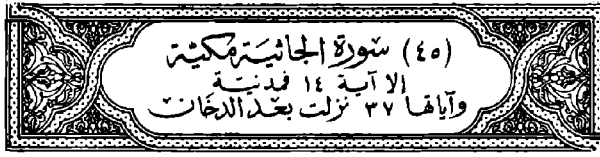 (٤٥) سورة الجاثية مكية
الا آية ١٤ فمدنية
وآياتها ٣٧ نزلت بعد الدخان